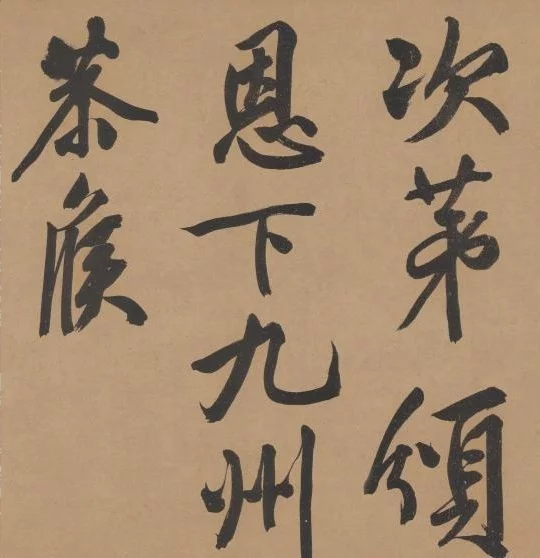 次苐頒
恩下九州
茶候